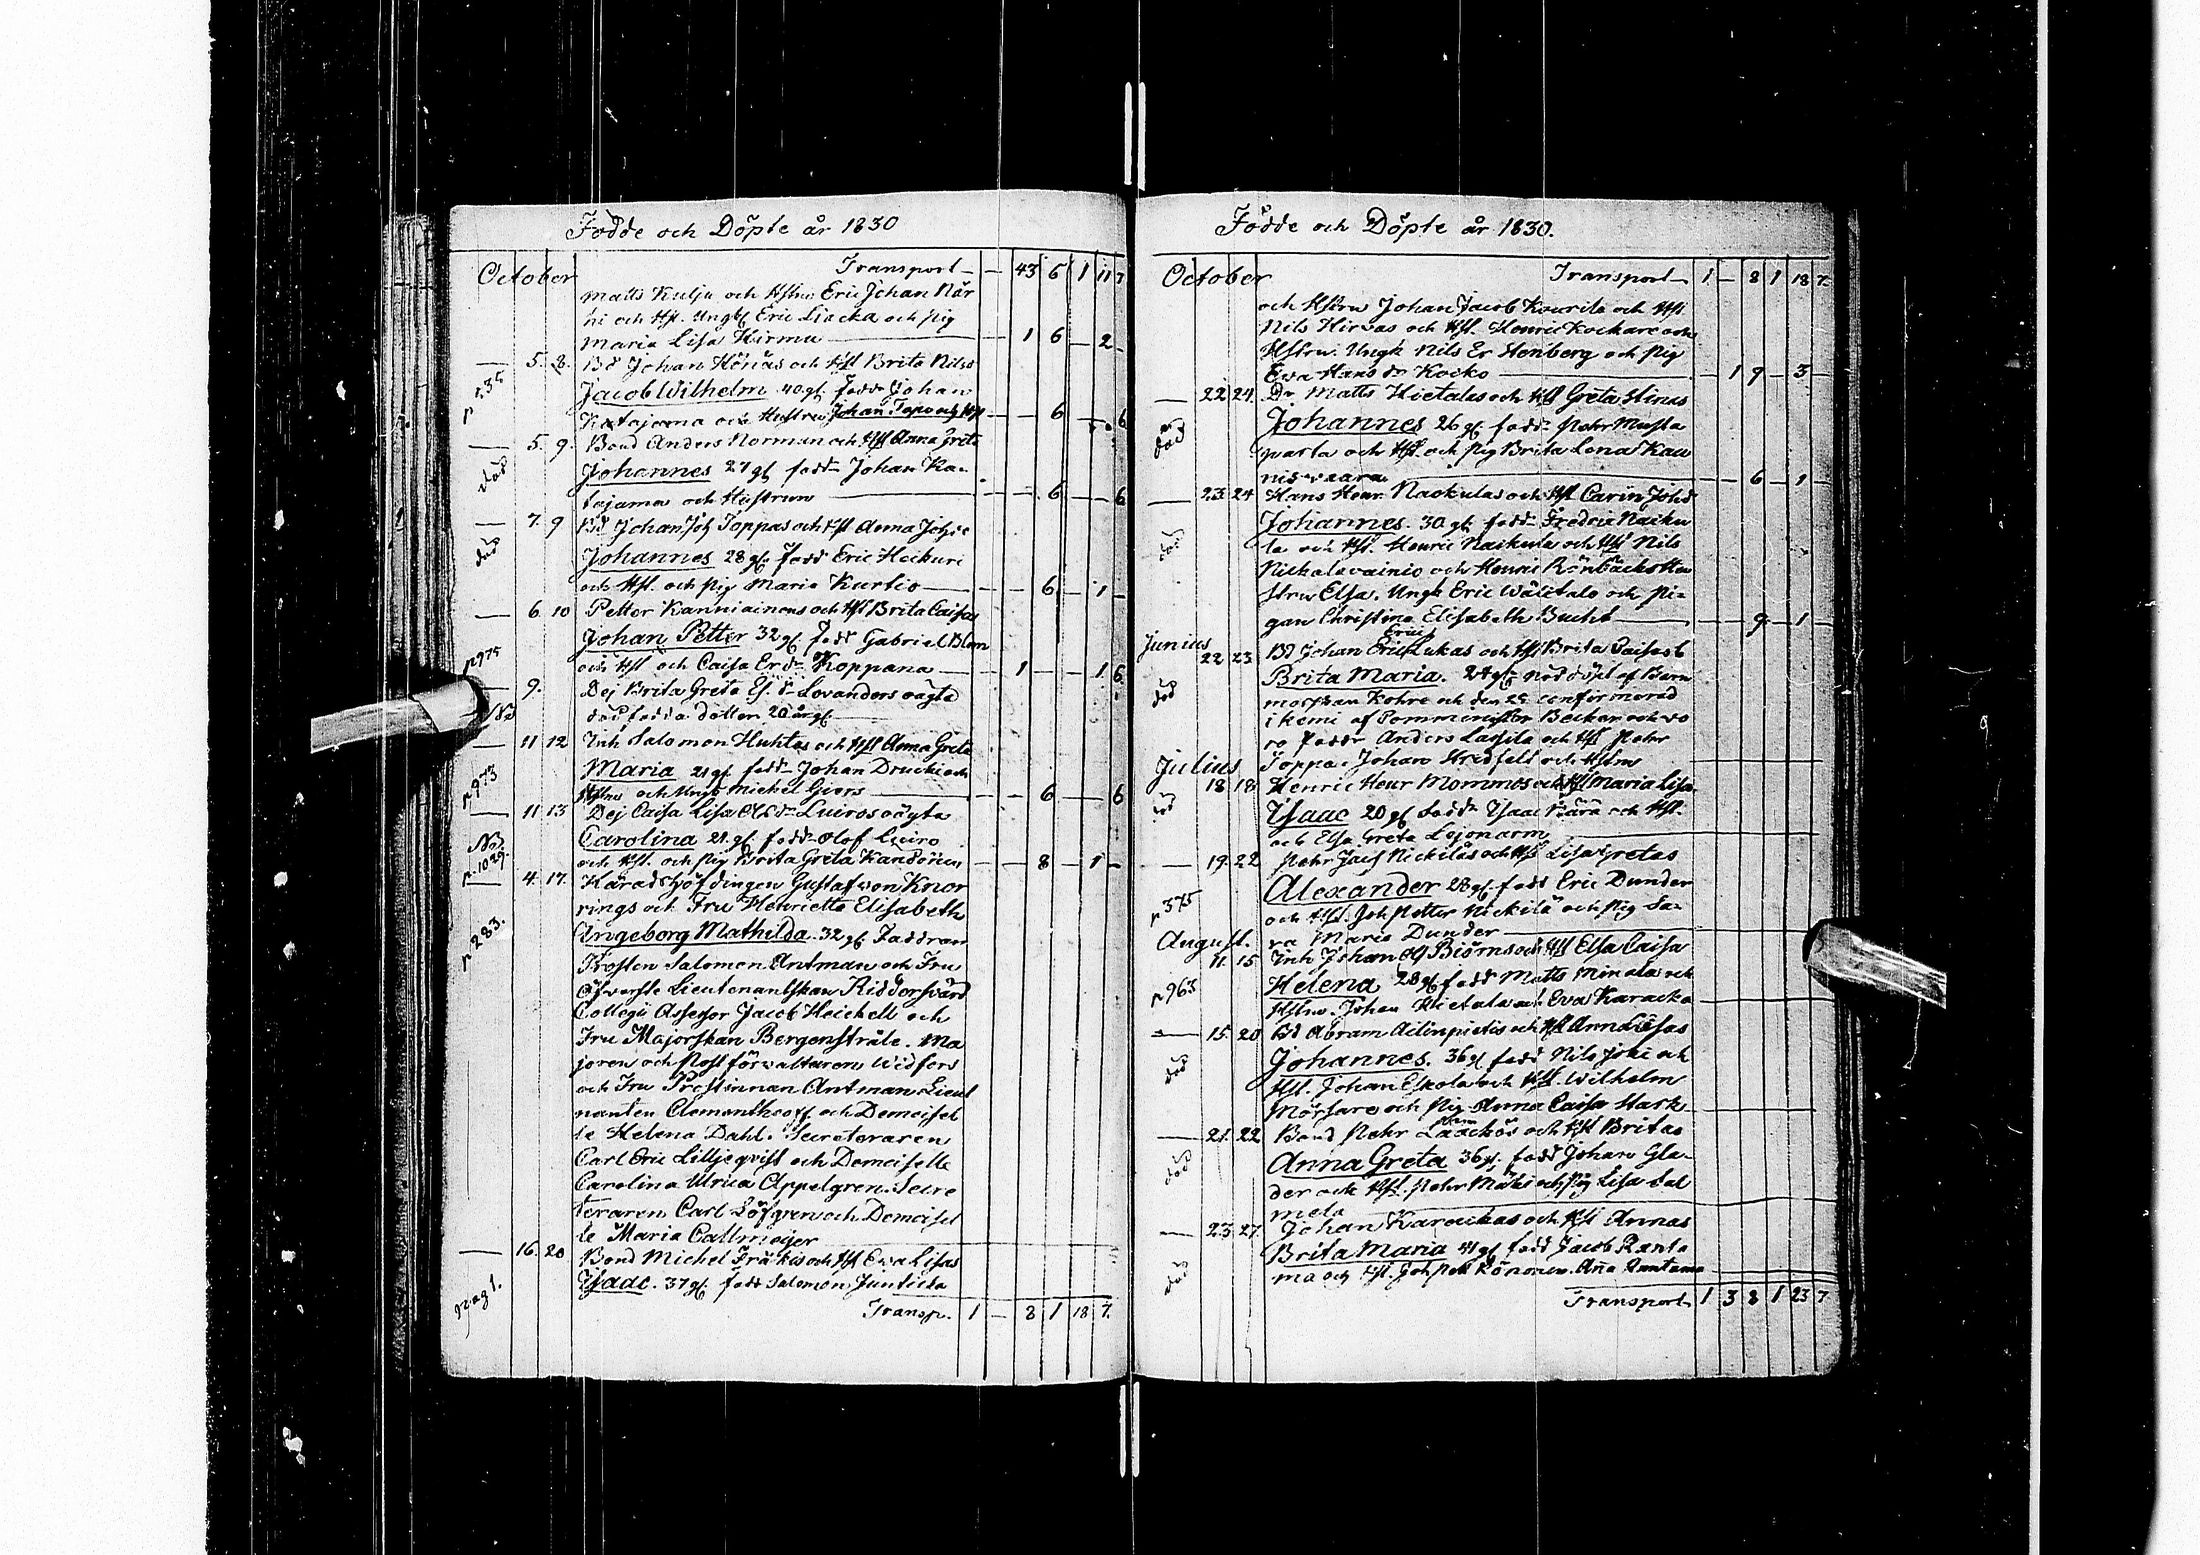 Födde och Döpte år 1830
October Transport — — 43 6 1 11 7
Matts Kulju och Hstru Eric Johan När
hi och Hst. Ungk Eric Liacka och pig
Maria Lisa Hirmu — 1 6 — 2 —
— 5. 8. Bd Johan Hörnäs och Hst Brita Nilsd
p 135 Jacob Wilhelm 40 gl. fadd Johan
Katajama och Hustru Johan Tapo och — 6 — 6
— 5. 9. Bond Anders Norman och Hst Anna Greta
död Johannes 27 gl fadd Johan Ka-
tajama och Hustrun — 6 — 6
— 7. 9 Bd Johan Joh Toppas och Hst Anna
död Johannes 28 gl. fadd Eric Heikuri
och Hst. och pig Maria Kurtio — 6 — 1 —
— 6. 10 Petter Kanniainens och Hst Brita Caisas
Johan Petter 32 gl. fadd Gabriel Blom
p 975 och Hst och Caisa Er dr Koppana — 1 — 1 6
— 9. Dej Brita Greta dr Lovanders oägta
NB dödfödda dotter 20 årgl.
— 11 12 Inh Salomon Huhtas och Hst Anna Greta
Maria 21 gl fadd Johan Drucki och
p 973 Hstru och Ungk Michel Giers — 6 — 6
— 11 13 Dej Caisa Lisa dr Luiros oägta
NB Carolina 21 gl. fadd Olof Luiro
p. 1029. och Hst. och pig Brita Greta — 8 — 1 —
— 4. 17. Häradshöfdingen Gustaf von Knor
rings och Fru Henrietta Elisabeth
p 283. Ingeborg Mathilda. 32 gl. Faddran
Prosten Salomon Antman och Fru
Öfverste Lieutenantskan Riddersvärd
Collegii Assessor Jacob Heickell och
Fru Majorskan Bergenstråle. Ma
joren och Postförvaltaren Widfors
och Fru Prostinnan Antman Lieut
nanten Clementheoff och Demoisel
le Helena Dahl. Secreteraren
Carl Eric Lilljeqvist och Demoiselle
Carolina Ulrica Appelgren. Secre
teraren Carl Löfgren och Demoisel
le Maria Callmeijer
— 16. 20 Bond Michel Fräkis och Hst Eva Lisas
pag 1. Isaac. 37 gl. fadd Salomon Juntikka
Transp. 1 — 8 1 18 7.
Födde och Döpte år 1830.
October Transport 1 — 8 1 18 7.
och Hstru Johan Jacob Kourila och Hst
Nils Hirvas och Hst. Henric Kockare och
Hstru. Ungk Nils Er Stenberg och pig
Eva Hans dr Kocko — 1 9 — 3 —
— 22 24. Dr Matts Hietalas och Hst Greta Stinas
död Johannes 26 gl. fadd Pehr Musta
parta och Hst. och pig Brita Lena Kau
nisvaara — 6 — 1 —
— 23. 24 Hans Henr Nackulas och Hst Carin Johd
död Johannes. 30 gl fadd Fredric Nacku
la och Hst. Henric Nackula och Hst Nils
Nickalavainio och Henric Rönbäcks Hu
stru Elsa. Ungk Eric Wälitalo och pi-
gan Christina Elisabeth Bucht — 9 — 1 —
Junius Erici
22 23 Bd Johan Eric Lukas och Hst Brita Caisas b
död Brita Maria. 24 gl. nöddöpt af Barn
morskan Kohre och den 25 confirmerad
i Kemi af Comminister Becker och vo
ro faddr Anders Lassila och Hst Pehr
Julius Toppa. Johan Stridfelt och Hstru
18 18 Henric Henr Mommos och Hst Maria Lisa
död Isaac 20 gl fadd Isaac Pärä och Hst.
och Elsa Greta Lojonarm
— 19. 22 Pehr Nickiläs och Hst Lisa Gretas
p 575 Alexander 28 gl. fadd Eric Dunder
och Hst. Joh Petter Nickilä och pig Sa-
August. ra Maria Dunder
11. 15 Inh Johan Ol Biörns och Hst Elsa Caisa
p 963 Helena 28 gl fadd Matts Minala och
Hstru. Johan Hietala och Eva Karacka
— 15. 20 Bd Abram Ailinpietis och Hst Anna Lisas
död Johannes. 36 gl fadd Nils Joki och
Hst. Johan Eskola och Hst. Wilhelm
Mörtare och pig Anna Caisa Stark
— 21. 22 Bond Pehr Laackos och Hst Britas
död Anna Greta 36 gl. fadd Johan Gla-
der och Hst. Pehr Mäki och pig Lisa Sal
mela
— 23 27. Johan Karackas och Hst Annas
död Brita Maria 41 gl fadd Jacob Ranta
ma och Hst. Joh Pett Könönen. Anna Rantama
Transport 1 3 8 1 23 7